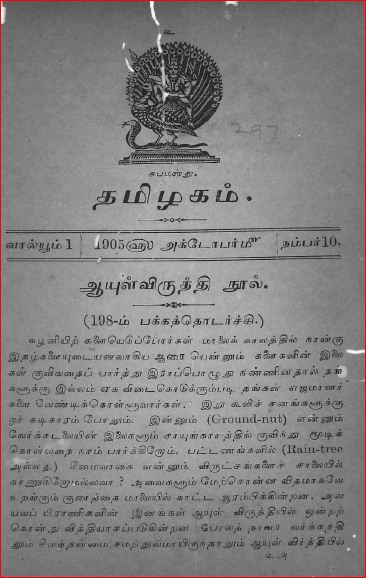 உ
297
சுபமஸ்து.
தமிழகம்.
வால்யூம் 1 1905௵ அக்டோபர்௴ நம்பர் 10.
ஆயுள்விருத்தி நூல்.
(198-ம் பக்கத்தொடர்ச்சி.)
கழனியிற் களையெடுப்போர்கள் மாலைக் காலத்தில் நான்கு
இதழ்களையுடையனவாகிய ஆரை யென்னும் களைகளின் இலை
கள் குவிவதைப் பார்த்து இராப்பொழுது நண்ணினதால் தங்
களுக்கு இல்லம் ஏக விடைகொடுக்கும்படி தங்கள் எஜமானர்
களை வேண்டிக்கொள்ளுவார்கள். இது கூலிச் சனங்களுக்கு
ஓர் கடிகாரம் போலும். இன்னும் (Ground-nut) என்னும்
வேர்க்கடலையின் இலைகளும் சாயுங்காலத்தில் குவிந்து மூடிக்
கொள்வதை நாம் பார்க்கிறோம். பட்டணங்களில் (Rain-tree
அல்லது) சீமைவாகை என்னும் விருட்சங்களைச் சாலையில்
காணுகிறோமல்லவா? அவைகளும் மேற்சொன்ன விதமாகவே
உறங்கும் குணத்தை மாலையில் காட்ட ஆரம்பிக்கின்றன. அவ
யவப் பிராணிகளின் இனங்கள் ஆயுள் விருத்தியில் ஒன்றற்
கொன்று வித்தியாசப்படுகின்றன போலத் தாவர வர்க்காதி
தும் சீவத்தன்மை சமத்துவமாயிருந்தாலும் ஆயுள் விர்த்தியில்